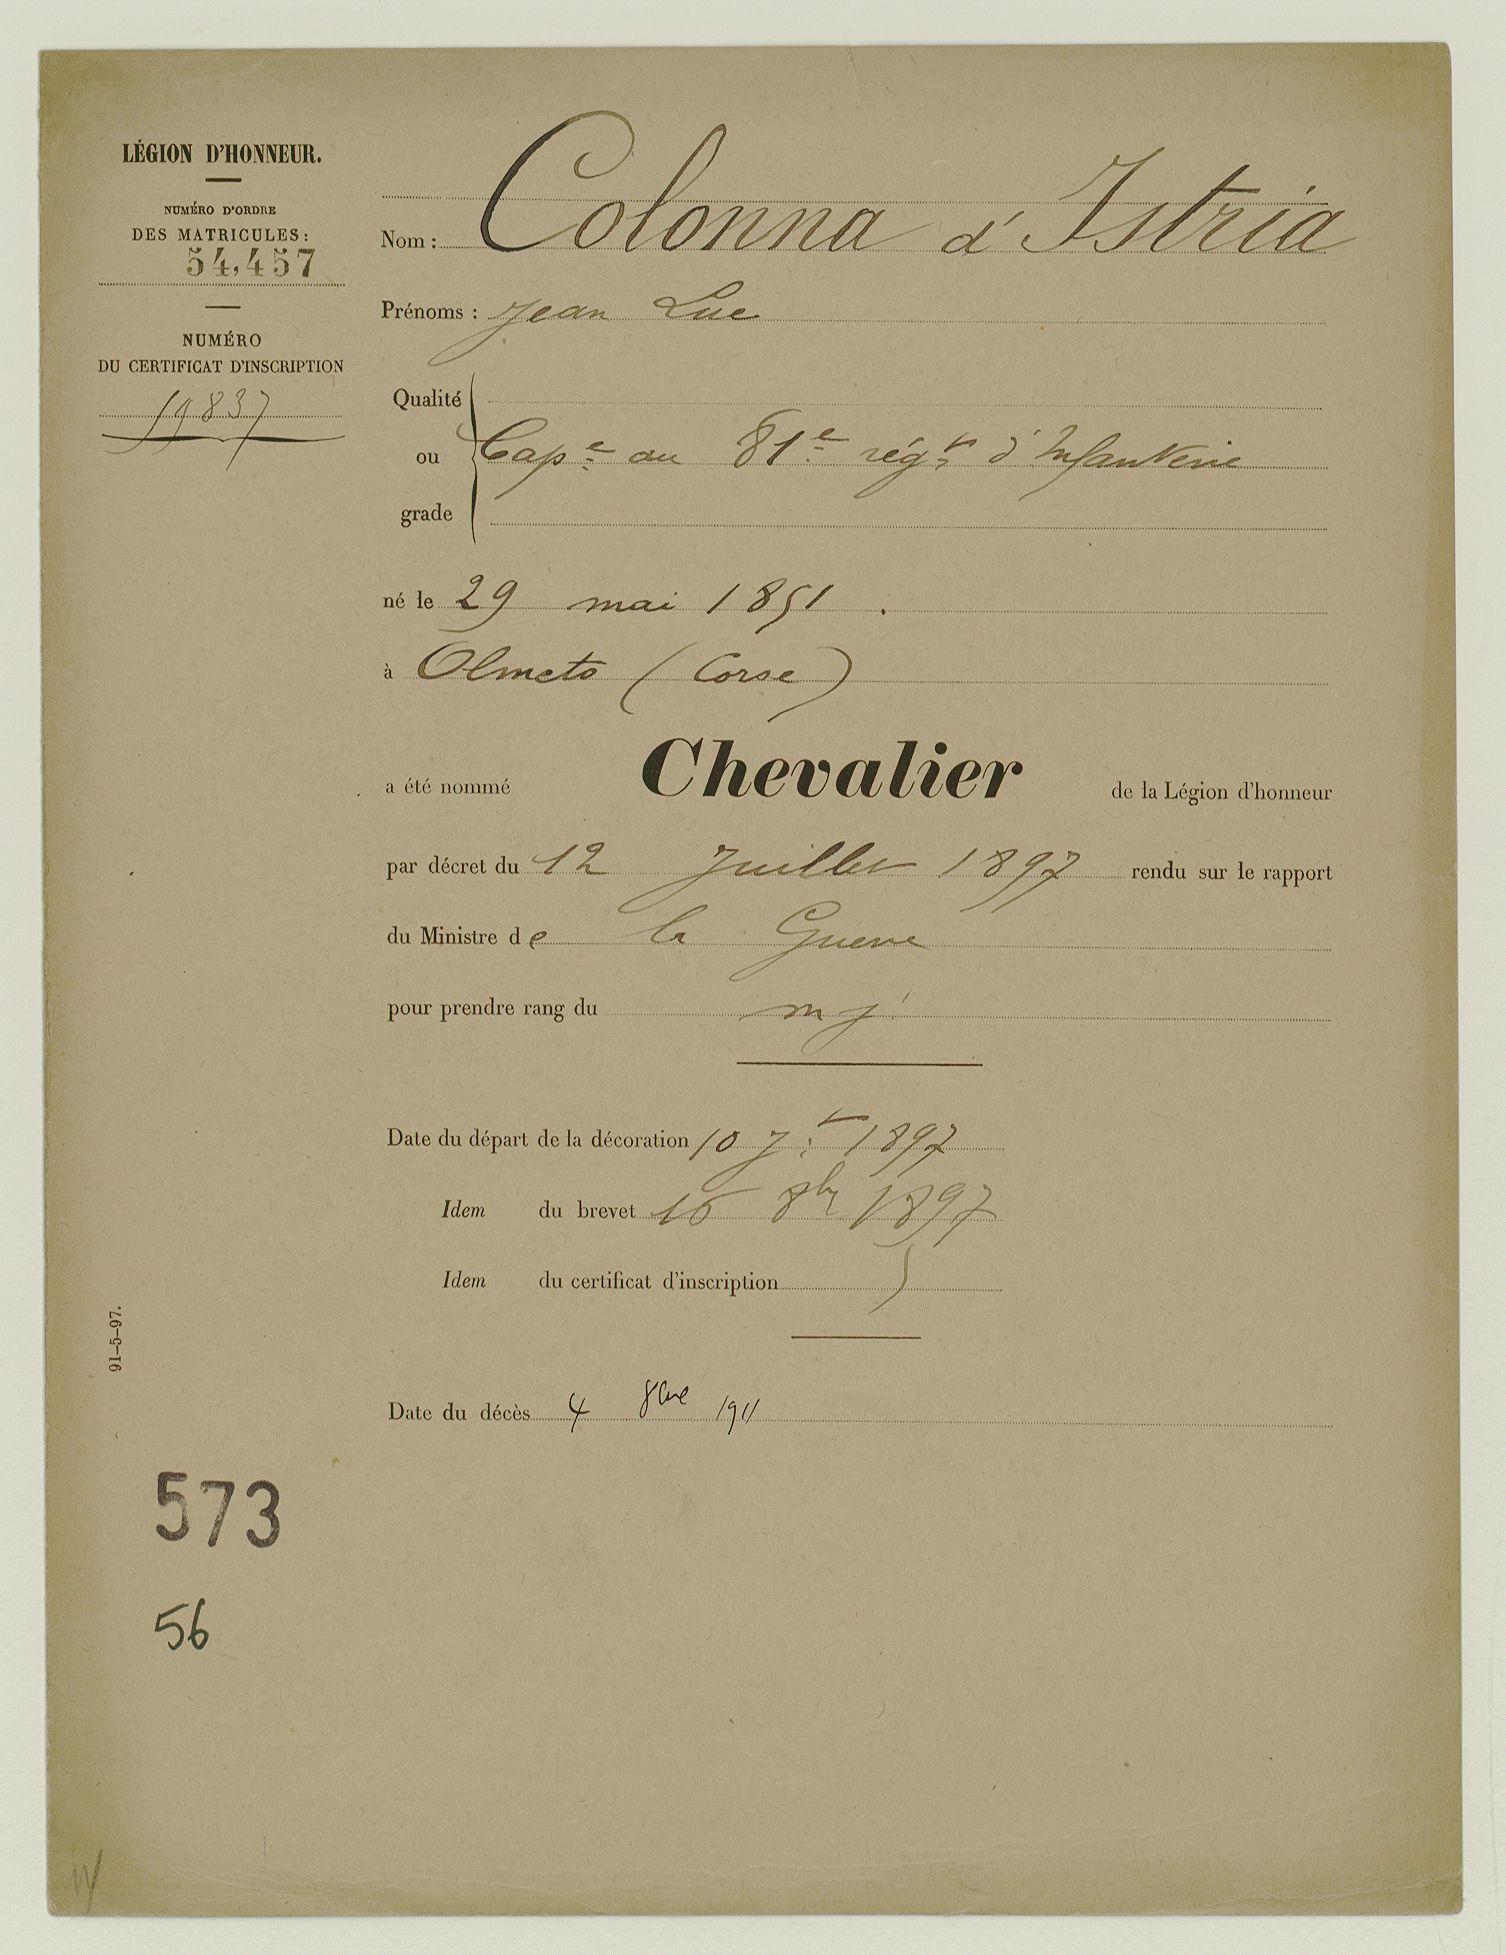 LÉGION D'HONNEUR.
NUMÉRO D'ORDRE
DES MATRICULES:
54,457
NUMÉRO
DU CERTIFICAT D'INSCRIPTION
19837
Nom: Colonna d'Istria
Prénoms: Jean Luc
Qualité
ou Cape au 81e régt d'Infanterie
grade
né le 29 mai 1851.
à Olmeto (Corse)
a été nommé Chevalier de la Légion d'honneur
par décret du 12 Juillet 1897 rendu sur le rapport
du Ministre de la Guerre
pour prendre rang du m j
Date du départ de la décoration 10 Jt 1897
Idem du brevet 16 8bre 1897
Idem du certificat d'inscription
Date du décès 4 8bre 1911
91-5-97.
573
56